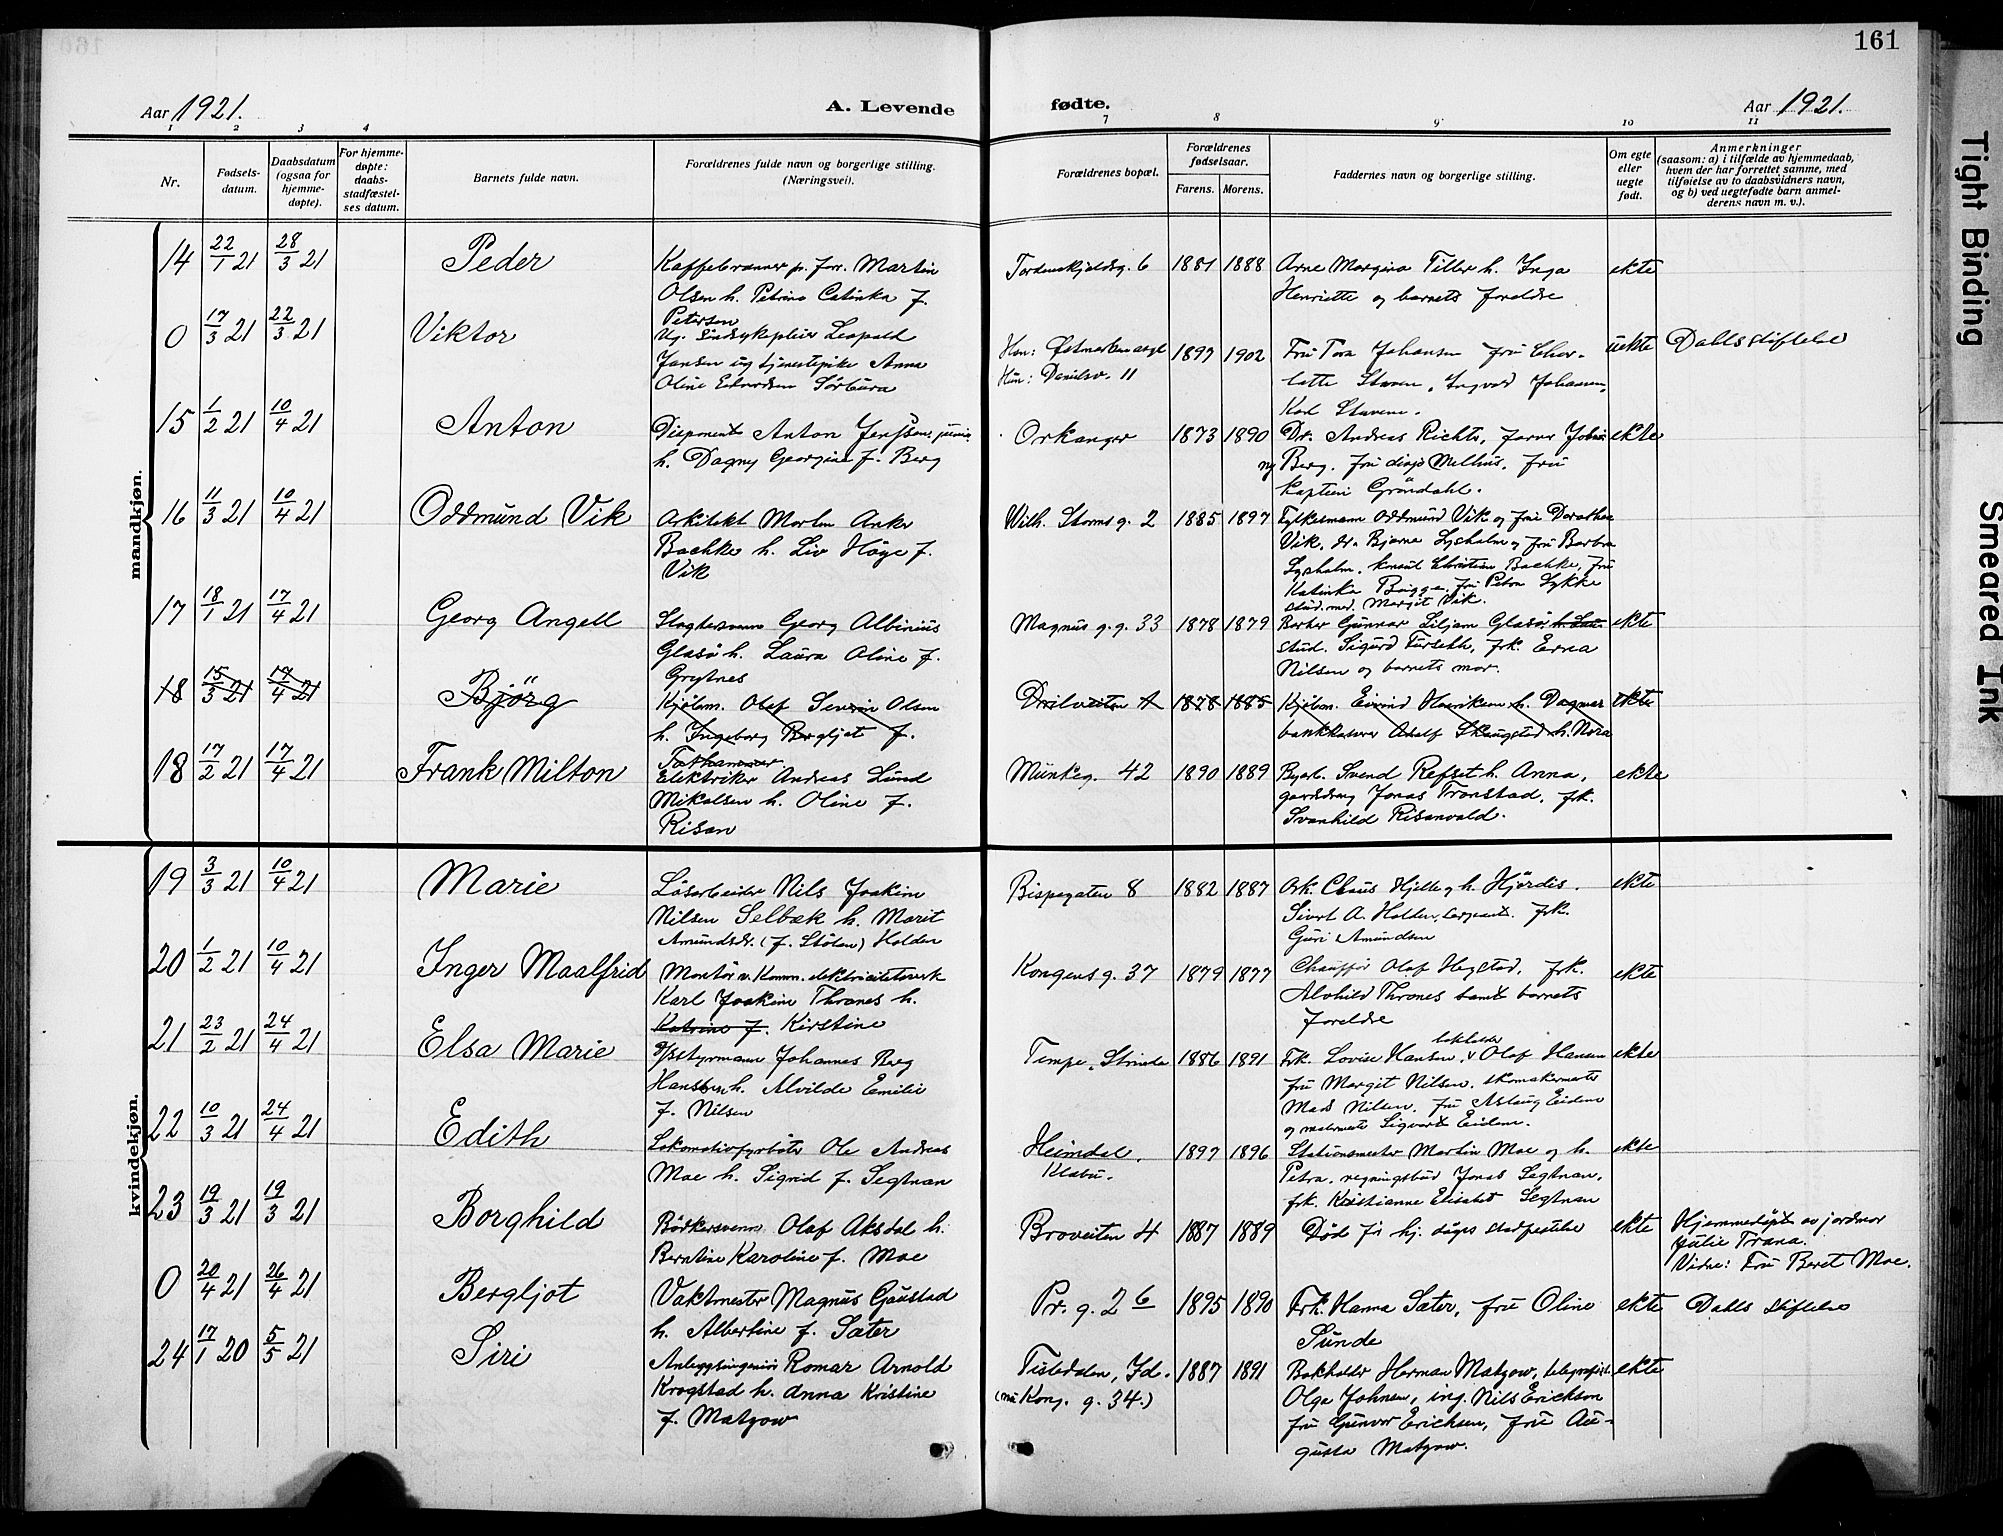 161
Aar 1921.
A. Levende
fødte.
Aar 1921.
1 2 3 4
7 8 9 10 11
Nr.
Fødsels-
datum.
Daabsdatum
(ogsaa for
hjemme-
døpte).
For hjemme-
døpte:
daabs-
stadfæstel-
ses datum.
Barnets fulde navn.
Forældrenes fulde navn og borgerlige stilling.
(Næringsvei).
Forældrenes bopæl.
Forældrenes
fødselsaar.
Farens. Morens.
Faddernes navn og borgerlige stilling.
Om egte
eller
uegte
født.
Anmerkninger
(saasom: a) i tilfælde av hjemmedaab,
hvem der har forrettet samme, med
tilføielse av to daabsvidners navn,
og b) ved uegtefødte barn anmel-
derens navn m. v.).
mandkjøn.
14 22/1 21 28/3 21 Peder
Kaffebrenner Martin
Olsen h. Petrine Catinka f.
Petersen
Tordenskjoldsg. 6 1881 1888
Arne Tiller h. Inga
Henriette og barnets foreldre
ekte
0 17/3 21 22/3 21 Viktor
Ug. Sindsykepleier Leopold
Jansen og tjenestepike Anna
Oline Edvardsen
Han:
Hun: Danielsv. 11
1897 1902
Fru Tora Johansen fru Char-
lotte Stavem, Ingvald Johansen,
Karl Stavem.
uekte Dahls stiftelse
15 1/2 21 10/4 21 Anton
Disponent Anton Jenssen junior
h. Dagny Georgine f. Berg
Orkanger 1873 1890
Dr. Andreas Richter, Johan-
ny Berg. fru disp Melhus, fru
kaptein Gröndahl.
ekte
16 11/3 21 10/4 21 Oddmund Vik
Arkitekt Morten Anker
Bachke h. Liv Höye f.
Vik
Wilh. Stormsg. 2 1885 1897
Fylkesmann Oddmund Vik og frue Dorothea
Vik, dr. Bjarne Lysholm og fru Barbra
Lysholm, konsul Christian Bachke, fru
Katinka Brigge, fru Petra Lykke
stud. med. Margit Vik.
17 18/1 21 17/4 21 Georg Angell
Slagtersvenn Georg Albinius
Glasö h. Laura Oline f.
Grytnes
Magnus g. g. 33 1878 1879
Gunnar Liljan Glasö
stud. Sigurd Furseth, frk. Erna
Nilsen og barnets mor.
ekte
18 15/3 21 17/4 21 Björg
Kjøbm. Olaf Severin Olsen
h. Ingeborg Bergljot f.
Drilveiten 1878 1885
Kjøbm. Eivind Henriksen h. Dagmar
bankkaserer Adolf Skaugstad h. Nora
ekte
18 17/2 21 17/4 21 Frank Milton
Elektriker Andreas Lund
Mikalsen h. Oline f.
Risan
Munkeg. 42 1890 1889
Svend Refset h. Anna,
gaardsdreng Jonas Tronstad, frk.
Svanhild Risanvald.
ekte
kvindekjøn.
19 3/3 21 10/4 21 Marie
Løsarbeider Nils Joakim
Nilsen Selbæk h. Marit
Amundsdr. (f. Stölen) Holden
Bispegaten 8 1882 1887
Ark. Claus Hjelte og h. Hjørdis.
Sivert A. Holden, sergeant. frk.
Guri Amundsen
ekte
20 1/2 21 10/4 21 Inger Maalfrid
Montör v. Komm. elektricitetsverk
Karl Joakim Thranes h.
Katrine f. Kirstine
Kongensg. 37 1879 1877
Chauffør Olaf Hegstad, frk.
Alvhild Thrones samt barnets
foreldre
ekte
21 23/2 21 24/4 21 Elsa Marie
Styrmann Johannes Berg
Hansen h. Alvilde Emilie
f. Nilsen
Tempe, Strinda 1886 1891
Frk. Lovise Hansen, Olaf Hansen
fru Margit Nilsen, skomakermester
Mads Nilsen, fru Aslaug Eidem
og malermester Sigvart Eidem.
ekte
22 10/3 21 24/4 21 Edith
Lokomotivfyrbøter Ole Andreas
Moe h. Sigrid f. Segtnan
Heimdal.
Klæbu.
1897 1896
Stationsmester Martin Moe og h.
Petra, regningsbud Jonas Segtnan,
frk. Kristianne Elisabet Segtnan
ekte
23 19/3 21 19/3 21 Borghild
Bödkersvenn Olaf Aksdal h.
Berntine Karoline f. Moe
Broveiten 4 1887 1889
Död för hj. dåps stadfestelse
ekte
Hjemmedöpt av jordmor
Julie Trana.
Vidne: Fru Beret Moe.
0 20/4 21 26/4 21 Bergljot
Vaktmester Magnus Gaustad
h. Albertine f. Sæter
Pr. g. 26 1895 1890
Frk. Hanna Sæter, fru Oline
Sunde
ekte Dahls stiftelse
24 17/1 20 5/5 21 Siri
Anleggsingeniör Romar Arnold
Krogstad h. Anna Kristine
f. Matzow
Tistedalen, Id.
(nu Kong. g. 34.)
1887 1891
Bokholder Herman Matzow, telegrafist
Olga Johnsen, ing. Nils Erickson
fru Gunvor Ericksen, fru Au-
gusta Matzow.
ekte
Tight Binding
Smeared Ink